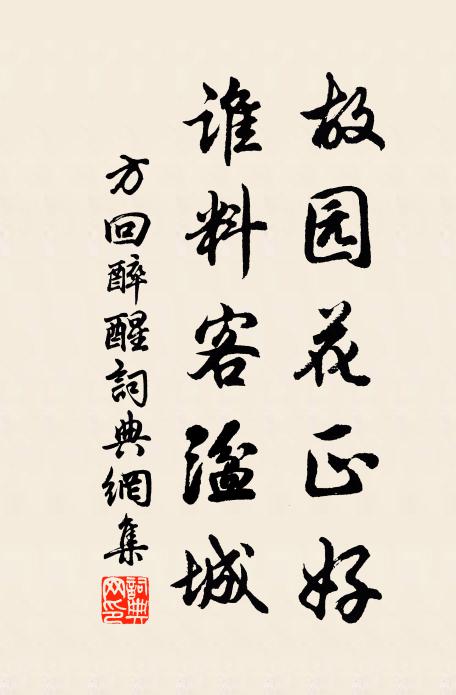 故园花正好
谁料客湓城
方回醉醒詞典網集
詞典
网印